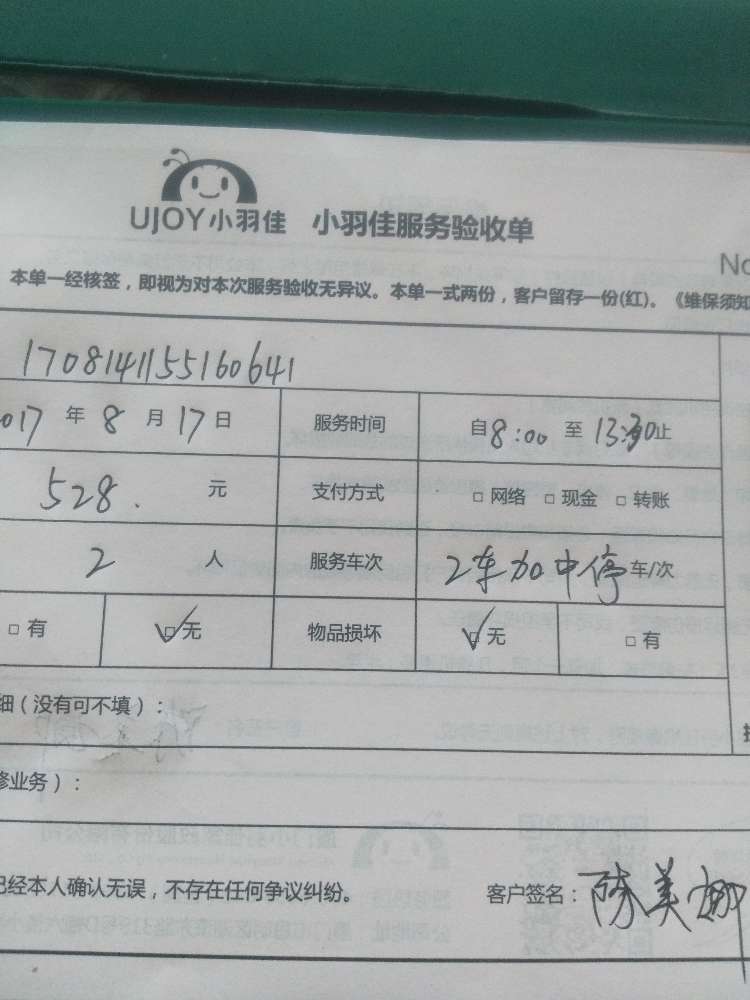 UJOY小羽佳 小羽佳服务验收单
No
本单一经核签，即视为对本次服务验收无异议。本单一式两份，客户留存一份(红)。《维保须知
1708141155160641
017 年 8 月 17 日 服务时间 自 8:00 至 13:30 止
528. 元 支付方式 □ 网络 □ 现金 □ 转账
2 人 服务车次 2车加中停 车/次
□ 有 ☑ 无 物品损坏 ☑ 无 □ 有
细（没有可不填）：
修业务）：
已经本人确认无误，不存在任何争议纠纷。 客户签名：陈美娜